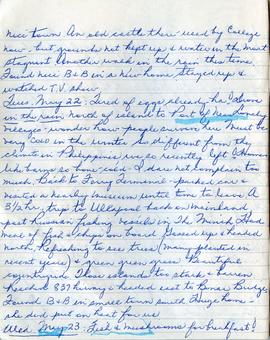 nice town. An old castle there used by College
now - but grounds not kept up & water in the moat
stagnant. Another walk in the rain this time.
Found nice B & B in a new home. Stayed up &
watched T.V. show.
Tues. May 22 - Tired of eggs already, ha! Drove
in the rain north of island to Port of Ness. Lonely
villages - wonder how people survive here. Must be
very cold in the winter. So different from the
climate in Philippines we so recently left.
like barns so bone cold - I dare not complain too
much. Back to ferry terminal - parked car &
visited a nearby museum until time to leave. A
3 1/2 hr. trip to Ullapool, back on mainland
past huge fishing vessels in The Minch. Had
meal of fish & chips on board. Gassed up & headed
north. Refreshing to see trees (many planted in
recent years) & green green grass. Beautiful
countryside. Those islands too stark & barren.
Reached 837 highway & headed east to Bonar Bridge.
Found B & B in small town south. Huge home -
she did put on heat for us.
Wed. May 23 - Fish & mushrooms for breakfast!